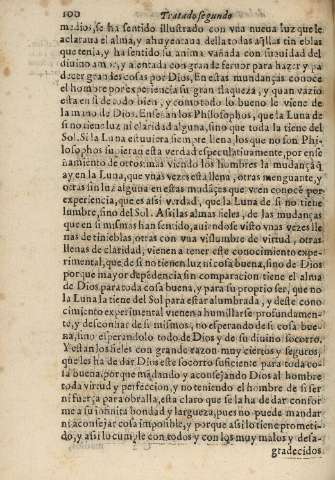 100
Tratado segundo
medios, se ha sentido illustrado con vna nueua luz que le
aclaraua el alma, y ahuyentaua della todas aq̃llas tinieblas
que tenia, y ha sentido su anima vañada con suauidad del
diuino amor, y alentada con grande feruor para hazer y pa
decer grandes cosas por Dios. En estas mudanças conoce
el hombre por experiencia su gran flaqueza, y quan vazio
esta en si de todo bien, y como todo lo bueno le viene de
la mano de Dios. Enseñan los Philosophos, que la Luna de
si no tiene luz ni claridad alguna, sino que toda la tiene del
Sol. Si la Luna estuuiera siempre llena, los que no son Phi-
losophos supieran esta verdad especulatiuamente, por ense
ñamiento de otros: mas viendo los hombres la mudança q̃
ay en la Luna, que vnas vezes esta llena, otras menguante, y
otras sin luz alguna en estas mudãças que veen conocẽ por
experiencia, que es assi verdad, que la Luna de si no tiene
lumbre, sino del Sol. Assi las almas fieles, de las mudanças
que en si mismas han sentido, auiendose visto vnas vezes lle
nas de tinieblas, otras con vna vislumbre de virtud, otras
llenas de claridad, vienen a tener este conocimiento expe-
rimental, que de si no tienen luz ni cosa buena, sino de Dios
porque mayor depẽdencia sin comparacion tiene el alma
de Dios para toda cosa buena, y para su proprio ser, que no
la Luna la tiene del Sol para estar alumbrada, y deste cono
cimiento experimental vienen a humillarse profundamen-
te, y desconfiar de si mismos, no esperando de si cosa bue-
na, sino esperandolo todo de Dios y de su diuino socorro.
Y estan los fieles con grande razon muy ciertos y seguros,
que les ha de dar Dios este socorro suficiente para toda co-
sa buena, porque mãdando y aconsejando Dios al hombre
toda virtud y perfeccion, y no teniendo el hombre de si ser
ni fuerça para obralla, esta claro que se la ha de dar confor
me a su infinita bondad y largueza, pues no puede mandar
ni aconsejar cosa imposible, y porque assi lo tiene prometi-
do, y assi lo cumple con todos y con los muy malos y desa-
gradecidos